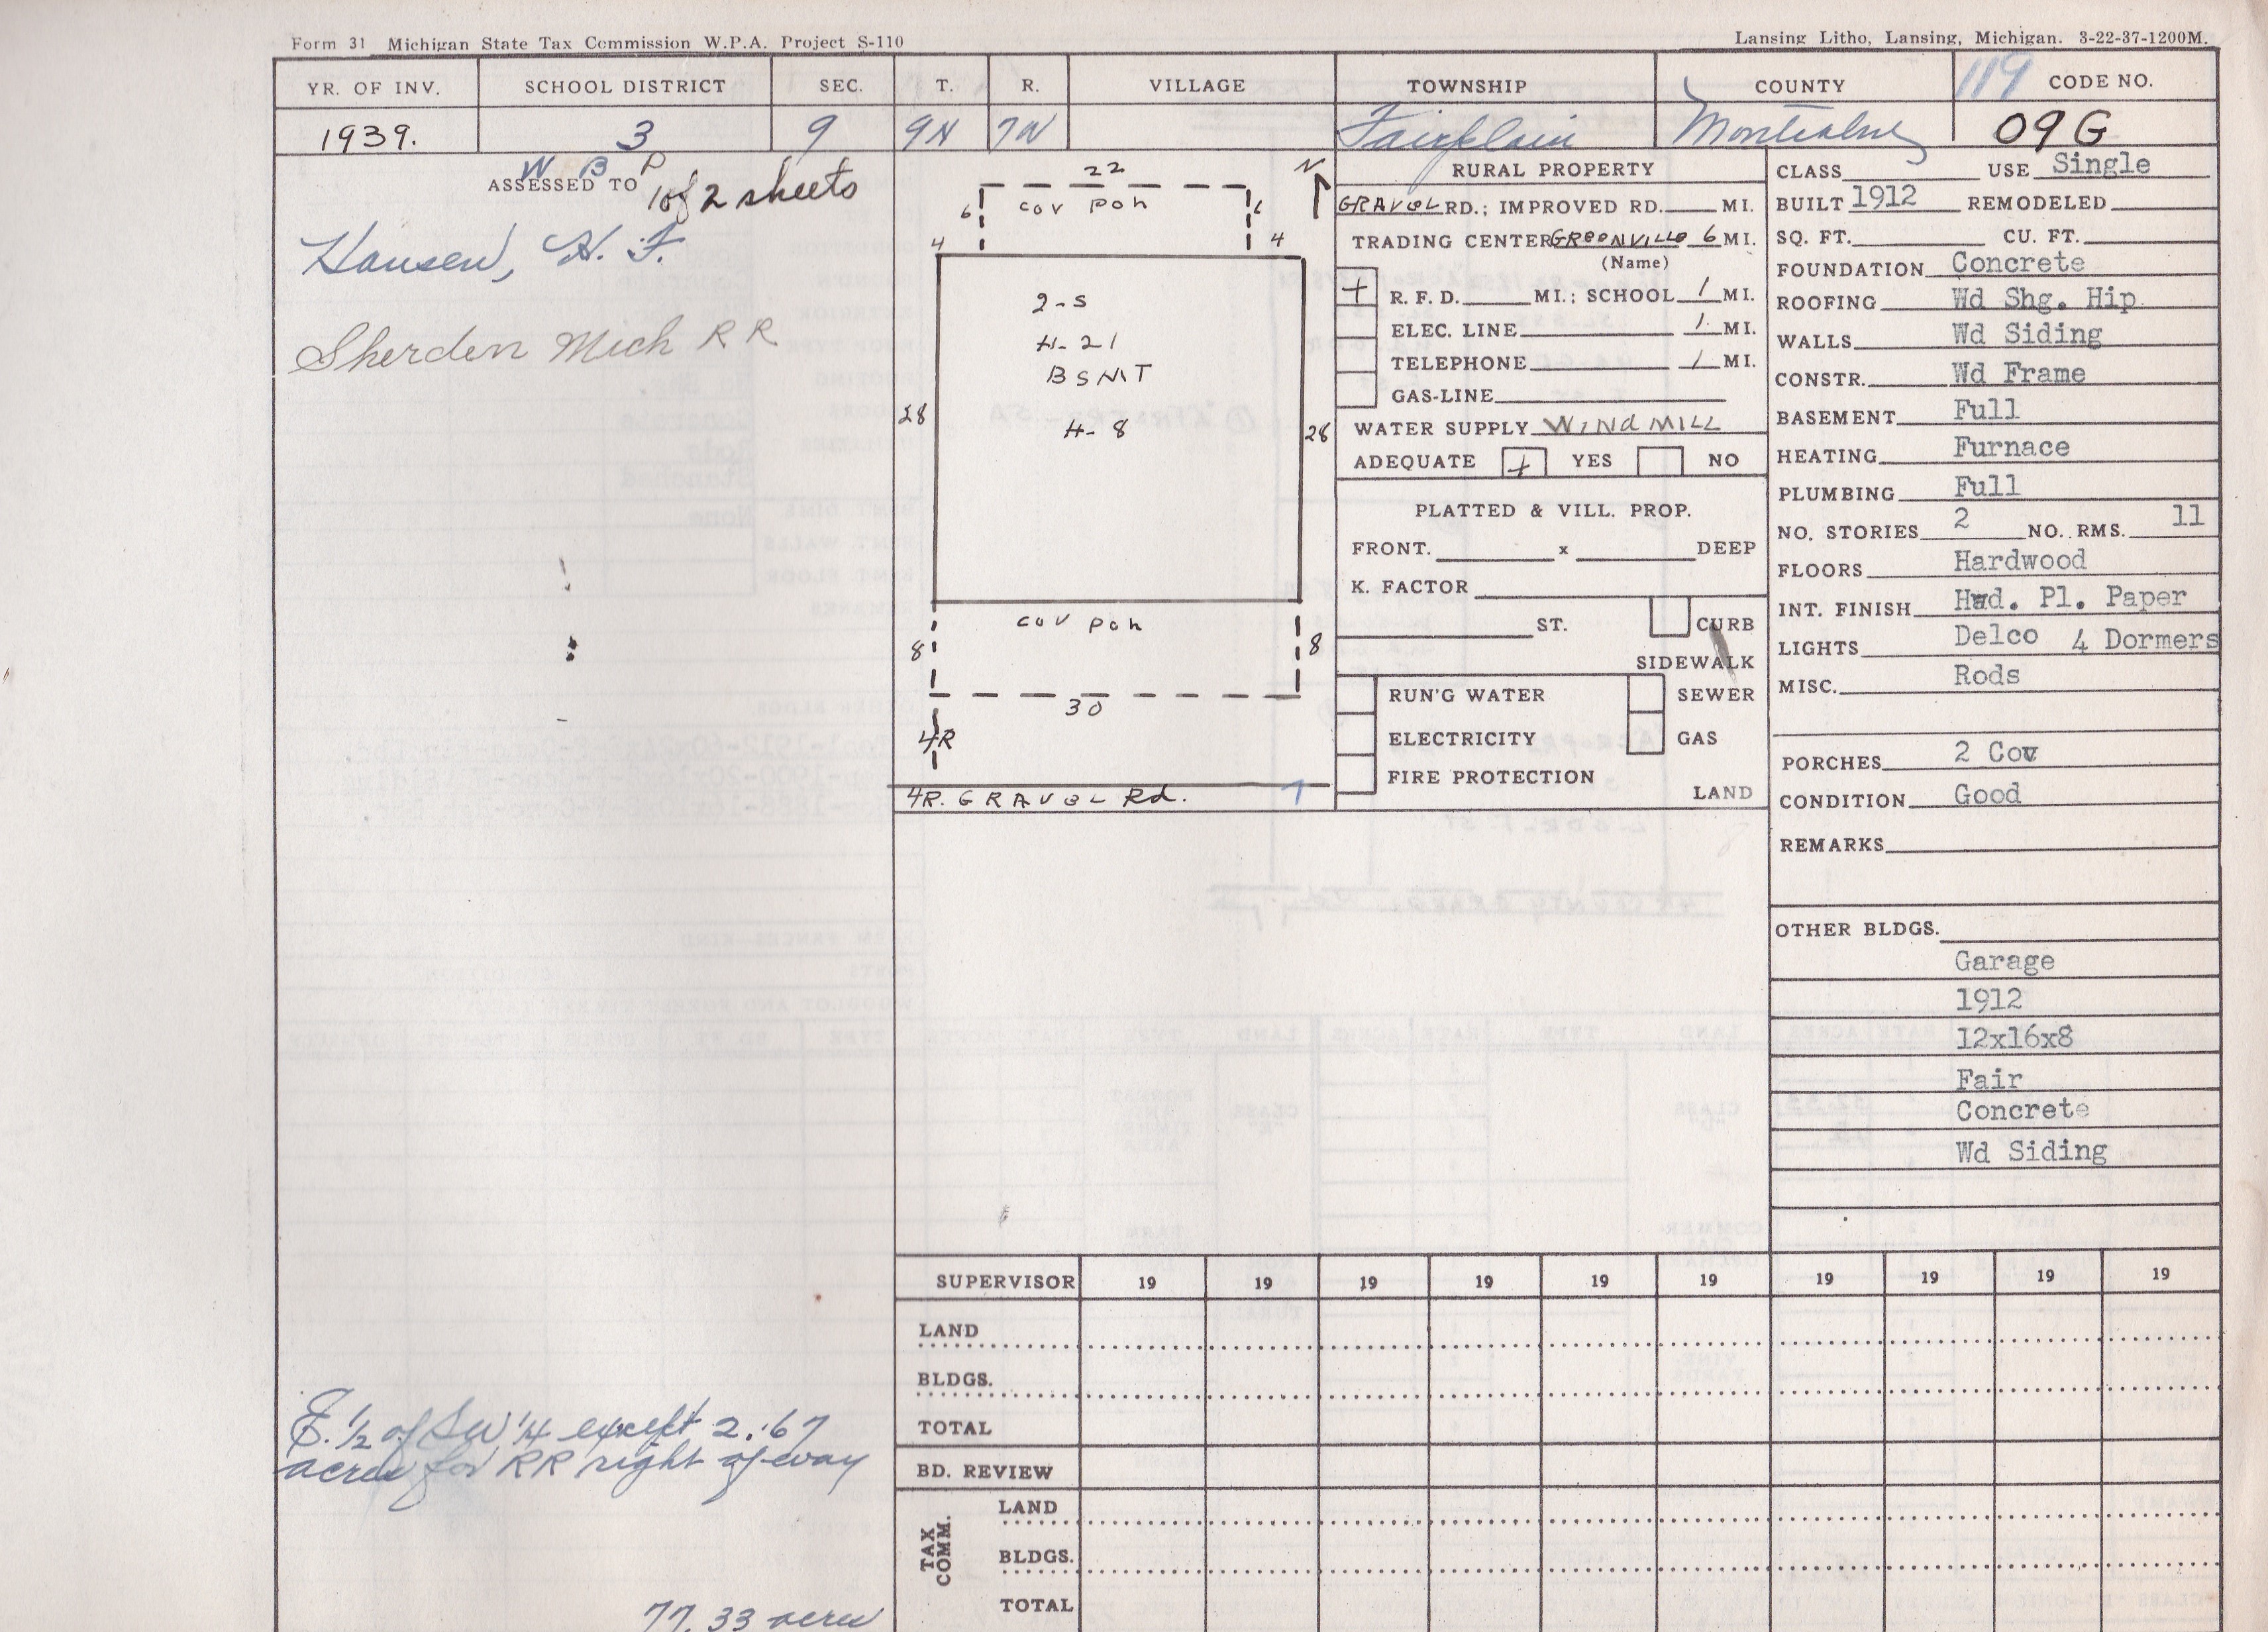 Form 31 Michigan State Tax Commission W.P.A. Project S-110
Lansing Litho, Lansing, Michigan. 3-22-37-1200M.
YR. OF INV. SCHOOL DISTRICT SEC. T. R. VILLAGE TOWNSHIP COUNTY 119 CODE NO.
1939. 3 9 9N 7W Fairplain Montcalm 09G
W B P
ASSESSED TO
1 of 2 sheets
Hansen, H. F.
Sherden Mich R R
E. 1/2 of SW 1/4 except 2.67
acres for RR right of way
77.33 acres
22
N
6 cov poh 6
4 4
2-S
H-21
BSMT
H-8
28 28
cov poh
8 8
30
4R
4R. GRAVEL Rd.
RURAL PROPERTY
GRAVEL RD.; IMPROVED RD. MI.
TRADING CENTER GREENVILLE 6 MI.
(Name)
+ R. F. D. MI.; SCHOOL 1 MI.
ELEC. LINE 1 MI.
TELEPHONE 1 MI.
GAS-LINE
WATER SUPPLY WINDMILL
ADEQUATE + YES NO
PLATTED & VILL. PROP.
FRONT. x DEEP
K. FACTOR
ST. CURB
SIDEWALK
RUN'G WATER SEWER
ELECTRICITY GAS
FIRE PROTECTION
LAND
CLASS USE Single
BUILT 1912 REMODELED
SQ. FT. CU. FT.
FOUNDATION Concrete
ROOFING Wd Shg. Hip
WALLS Wd Siding
CONSTR. Wd Frame
BASEMENT Full
HEATING Furnace
PLUMBING Full
NO. STORIES 2 NO. RMS. 11
FLOORS Hardwood
INT. FINISH Hwd. Pl. Paper
LIGHTS Delco 4 Dormers
MISC. Rods
PORCHES 2 Cov
CONDITION Good
REMARKS
OTHER BLDGS.
Garage
1912
12x16x8
Fair
Concrete
Wd Siding
SUPERVISOR 19 19 19 19 19 19 19 19 19 19
LAND
BLDGS.
TOTAL
BD. REVIEW
TAX COMM.
LAND
BLDGS.
TOTAL